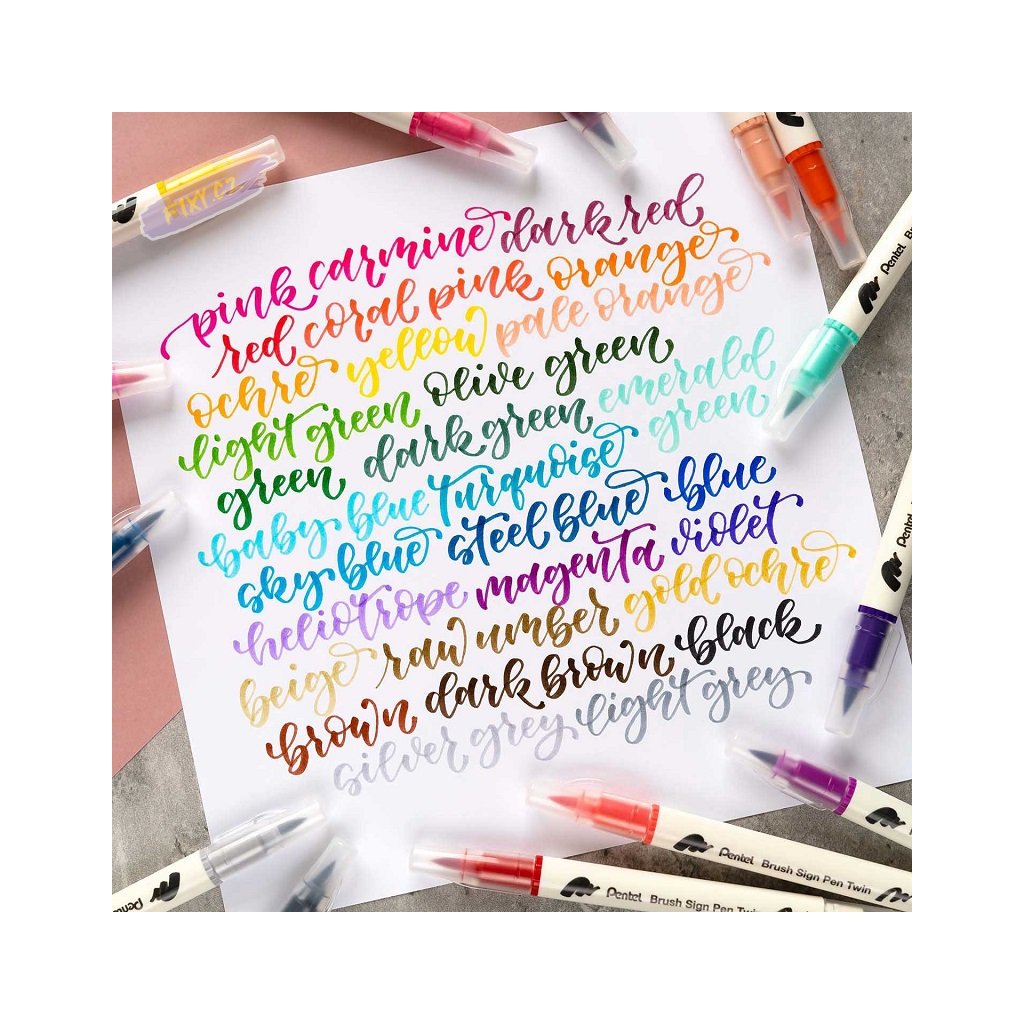 FIXY.CZ
pink carmine dark red
red coral pink orange
ochre yellow pale orange
light green olive green
green dark green emerald green
baby blue turquoise
sky blue steel blue blue
heliotrope magenta violet
beige raw umber gold ochre
brown dark brown black
silver grey light grey
Pentel
Pentel
Pentel Brush Sign Pen Twin
Pentel Brush Sign Pen Twin
Pentel